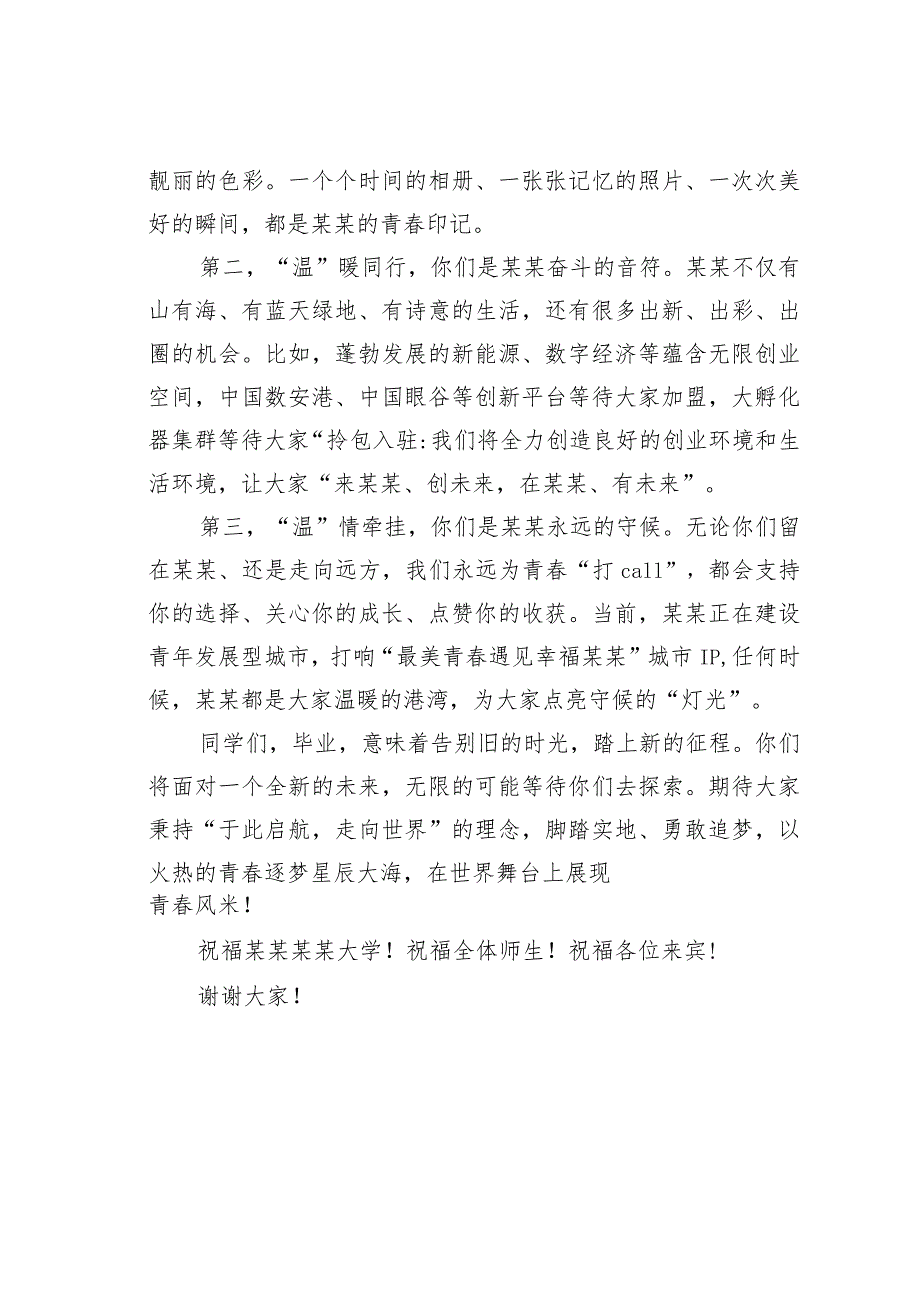 靓丽的色彩。一个个时间的相册、一张张记忆的照片、一次次美
好的瞬间，都是某某的青春印记。
第二，“温”暖同行，你们是某某奋斗的音符。某某不仅有
山有海、有蓝天绿地、有诗意的生活，还有很多出新、出彩、出
圈的机会。比如，蓬勃发展的新能源、数字经济等蕴含无限创业
空间，中国数安港、中国眼谷等创新平台等待大家加盟，大孵化
器集群等待大家“拎包入驻:我们将全力创造良好的创业环境和生
活环境，让大家“来某某、创未来，在某某、有未来”。
第三，“温”情牵挂，你们是某某永远的守候。无论你们留
在某某、还是走向远方，我们永远为青春“打call”，都会支持
你的选择、关心你的成长、点赞你的收获。当前，某某正在建设
青年发展型城市，打响“最美青春遇见幸福某某”城市IP,任何时
候，某某都是大家温暖的港湾，为大家点亮守候的“灯光”。
同学们，毕业，意味着告别旧的时光，踏上新的征程。你们
将面对一个全新的未来，无限的可能等待你们去探索。期待大家
秉持“于此启航，走向世界”的理念，脚踏实地、勇敢追梦，以
火热的青春逐梦星辰大海，在世界舞台上展现
青春风米！
祝福某某某某大学！祝福全体师生！祝福各位来宾!
谢谢大家！